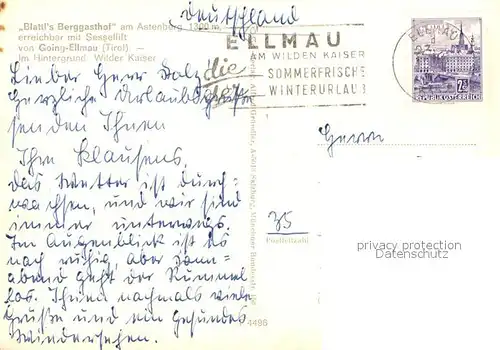 Deutschland
„Blattl's Berggasthof" am Astenberg, 1300 m,
erreichbar mit Sessellift
von Going-Ellmau (Tirol). —
Im Hintergrund Wilder Kaiser
ELLMAU
AM WILDEN KAISER
SOMMERFRISCHE
WINTERURLAUB
ELLMAU
REPUBLIK ÖSTERREICH
Lieber Herr Bolz,
Herzliche Urlaubsgrüße
senden Ihnen
die
Ihre Klausens,
das Wetter ist durch-
wachsen, und wir sind
immer unterwegs.
Im Augenblick ist es
noch ruhig, aber Sonn-
abend geht der Rummel
los. Ihnen nochmals viele
Grüße und ein gesundes
Wiedersehen.
Herrn
35
Postleitzahl
privacy protection
Datenschutz
4496